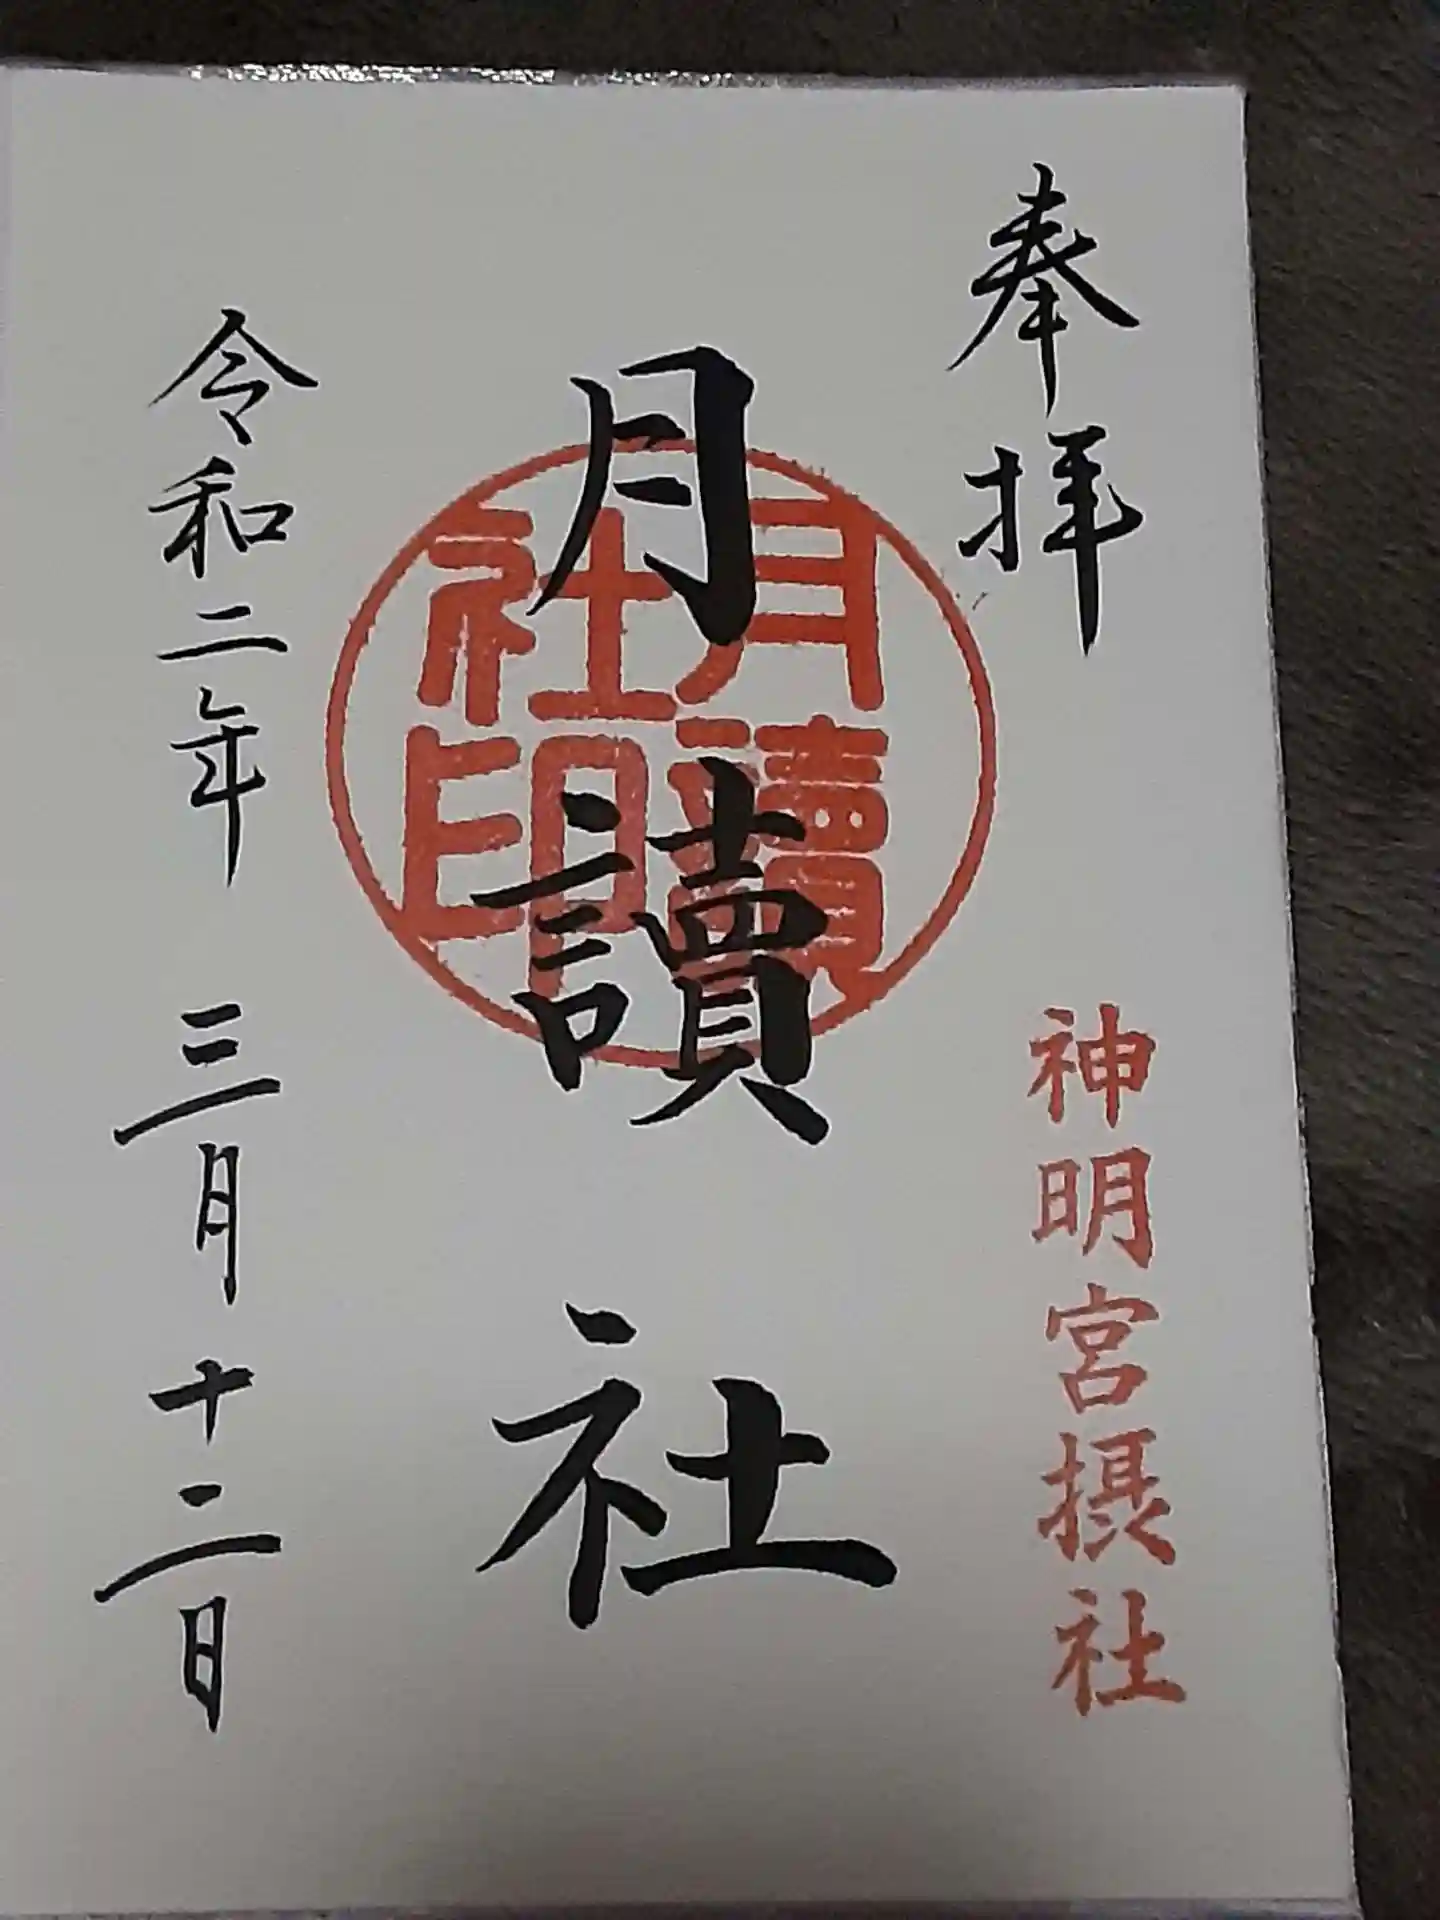 奉拝
神明宮摂社
月讀社
月讀社印
令和二年 三月十二日